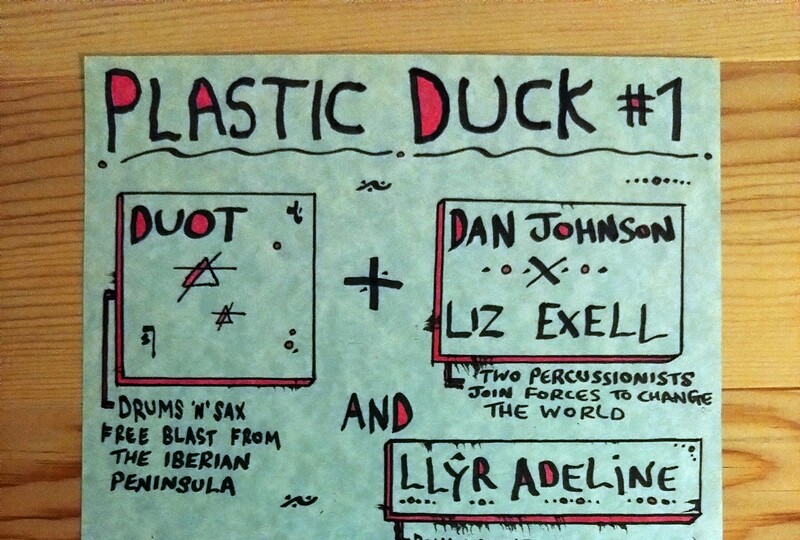 PLASTIC DUCK #1
DUOT
+
DAN JOHNSON
X
LIZ EXELL
DRUMS 'N' SAX
FREE BLAST FROM
THE IBERIAN
PENINSULA
TWO PERCUSSIONISTS
JOIN FORCES TO CHANGE
THE WORLD
AND
LLŶR ADELINE